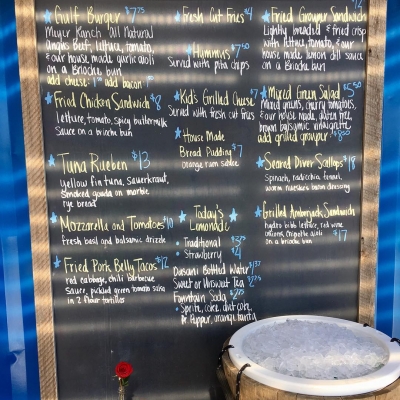 Gulf Burger $7.75
Meyer Ranch all Natural
Angus Beef, lettuce, tomato,
& our house made garlic aioli
on a Brioche bun
add cheese: 1.00 add bacon
Fried Chicken Sandwich $8
lettuce, tomato, spicy buttermilk
Sauce on a brioche bun
Tuna Rueben $13
yellow fin tuna, sauerkraut,
Smoked gouda on marble
rye bread
Mozzarella and Tomatoes $10
fresh basil and balsamic drizzle
Fried Pork Belly Tacos $12
red cabbage, chili barbecue
Sauce, pickled green tomato salsa
in 2 flour tortillas
Fresh Cut Fries $4
Hummus $7.50
Served with pita chips
Kids Grilled Cheese $7
Served with fresh cut fries
House Made
Bread Pudding $7
orange rum sauce
Today's
Lemonade
Traditional $3.75
Strawberry $4
Dasani Bottled Water
Sweet or Unsweet Tea $2.75
Fountain Soda $2.75
Sprite, coke, diet coke,
Dr. Pepper, orange fanta
Fried Grouper Sandwich
Lightly breaded & fried crisp
with lettuce, tomato, & our
house made lemon dill sauce
on a Brioche bun
Mixed Green Salad $5.50
Mixed greens, cherry tomatoes,
& our house made, gluten free,
brown balsamic vinaigrette
add grilled grouper
Seared Diver Scallops $18
Spinach, radicchio, fennel,
warm nueske's bacon dressing
Grilled Amberjack Sandwich
hydro bibb lettuce, red wine
onions, chipotle aioli
on a brioche bun $17